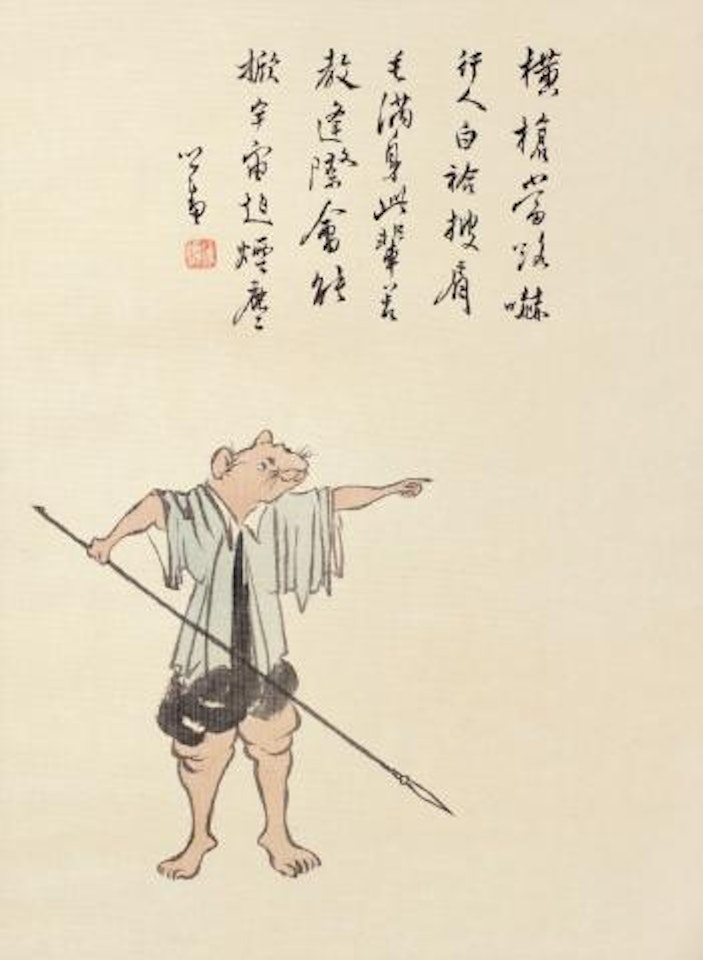 橫槍當路嚇
行人白袷披肩
毛滿身此輩若
教逢際會能
掀宇宙起煙塵
心畬